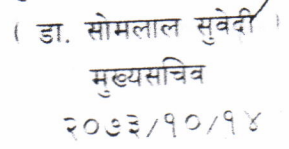 ( डा. सोमलाल सुवेदी )
मुख्यसचिव
२०७३/१०/१४